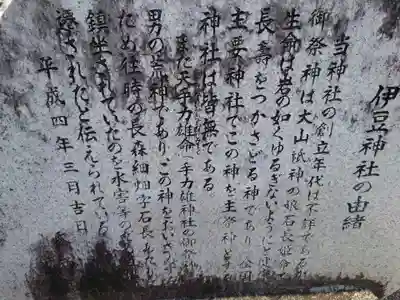 伊豆神社の由緒
当神社の創立年代は不詳であるが
御祭神は大山祇神の娘石長姫命で
生命は岩の如くゆるぎないように健康
長寿をつかさどる神であり全国
主要神社でこの神を主祭神と
神社は皆無である。
また天手力雄命(手力雄神社の御祭神
男の荒神であり、この神をお
ため往時の長森細畑字石長
鎮坐されていたのを水害等の
遷されたと伝えられている
平成四年三月吉日